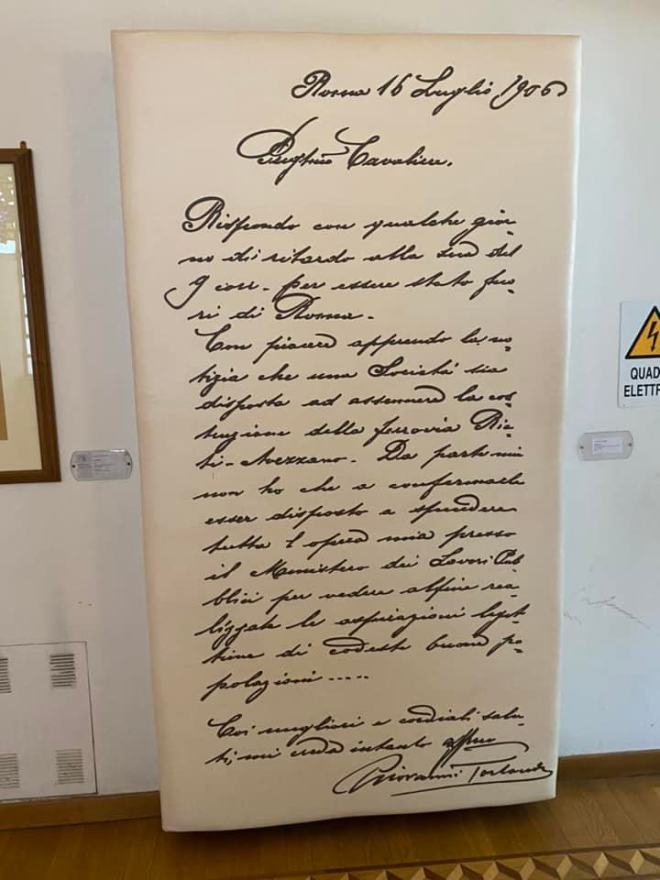 Roma 16 Luglio 1906
Cavaliere.
Rispondo con qualche gior-
no di ritardo alla sua del
9 corr. per essere stato fuo-
ri di Roma.
Con piacere apprendo la no-
tizia che una Società sia
disposta ad assumere la cos-
truzione della ferrovia Rie-
ti-Avezzano. Da parte mia
non ho che a confermarle
esser disposto a spendere
tutta l'opera mia presso
il Ministero dei Lavori Pub-
blici per vedere alfine rea-
lizzate le aspirazioni legit-
time di codeste buone po-
polazioni .....
Coi migliori e cordiali salu-
ti, mi creda intanto affmo
Giovanni Torlonia
QUAD
ELETTR